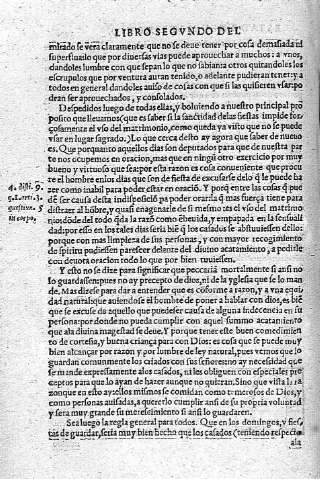 LIBRO SEGVNDO DEL
mirado se vera claramente que no se deue tener por cosa demasiada ni
superflua lo que por diuersas vias puede aprouechar a muchos: a vnos,
dandoles lumbre con que sepan lo que no sabian a otros quitandoles los
escrupulos que por ventura autan tenido, o adelante pudieran tener: y a
todos en general dandoles auiso de cosas con que si las quisieren vsar: po
dran ser aprouechados, y consolados.
Despedidos luego de todas ellas, y boluiendo a nuestro principal pro
posito que lleuamos (que es saber si la sanctidad delas fiestas impide for
çosamente el vso del matrimonio, como queda ya visto que no se puede
vsar en lugar sagrado.) Lo que cerca desto ay agora que saber de nueuo
es. Que porquanto aquellos dias son deputados para que de nuestra par
te nos ocupemos en oracion, mas que en ningũ otro exercicio por muy
bueno y virtuoso que sea: por esta razon es cosa conueniente que procu
re el hombre en los dias que son de fiesta de escusarse delo q̃ le puede ha
zer como inabil para poder estar en oraciõ. Y porq̃ entre las cosas q̃ pue
dẽ ser causa desta indisposiciõ pa poder orar la q̃ mas fuerça tiene para
distraer al hõbre, y quasi enagenarle de si mesmo es el vso del matrimo
nio donde del todo q̃da la razõ como ebeuida, y empapada en la sensuali
dad: por esso en los tales dias seria biẽ q̃ los casados se abstuuiessen dello:
porque con mas limpieza de sus personas, y con mayor recogimiento
de spiritu pudiessen parescer delante del diuino acatamiento, a pedirle
con deuota oracion todo lo que por bien tuuiessen.
Y esto no se dize para significar que peccaria mortalmente si ansi no
lo guardassen pues no ay precepto de dios, ni de la yglesia que se lo man
de. Mas dizese para dar a entender que es cõforme a razon, y a vna equi
dad natural que auiendose el hombre de poner a hablar con dios, es biẽ
que se escuse de aquello que puede ser causa de alguna indecencia en su
persona: por donde no pueda cumplir con aquel summo acatamiento
que ala diuina magestad se deue. Y porque tener este buen comedimien
to de cortesia, y buena criança para con Dios: es cosa que se puede muy
bien alcançar por razon y por lumbre de ley natural, pues vemos que lo
guardan comunmente los criados con sus señores no ay necessidad que
fe mande expressamente alos casados, ni les obliguen con especiales pre
ceptos para que lo ayan de hazer aunque no quieran. Sino que vista la ra
zon que en esto ay ellos mismos se comidan como temerosos de Dios, y
como personas auisadas, a quererlo cumplir ansi de su propria voluntad
y sera muy grande su merescimiento si ansi lo guardaren.
Sea luego la regla general para todos. Que en los domingos, y fies,
tas de guardar, seria muy bien hecho que los casados (teniendo respecto
ala
4. dist. 9.